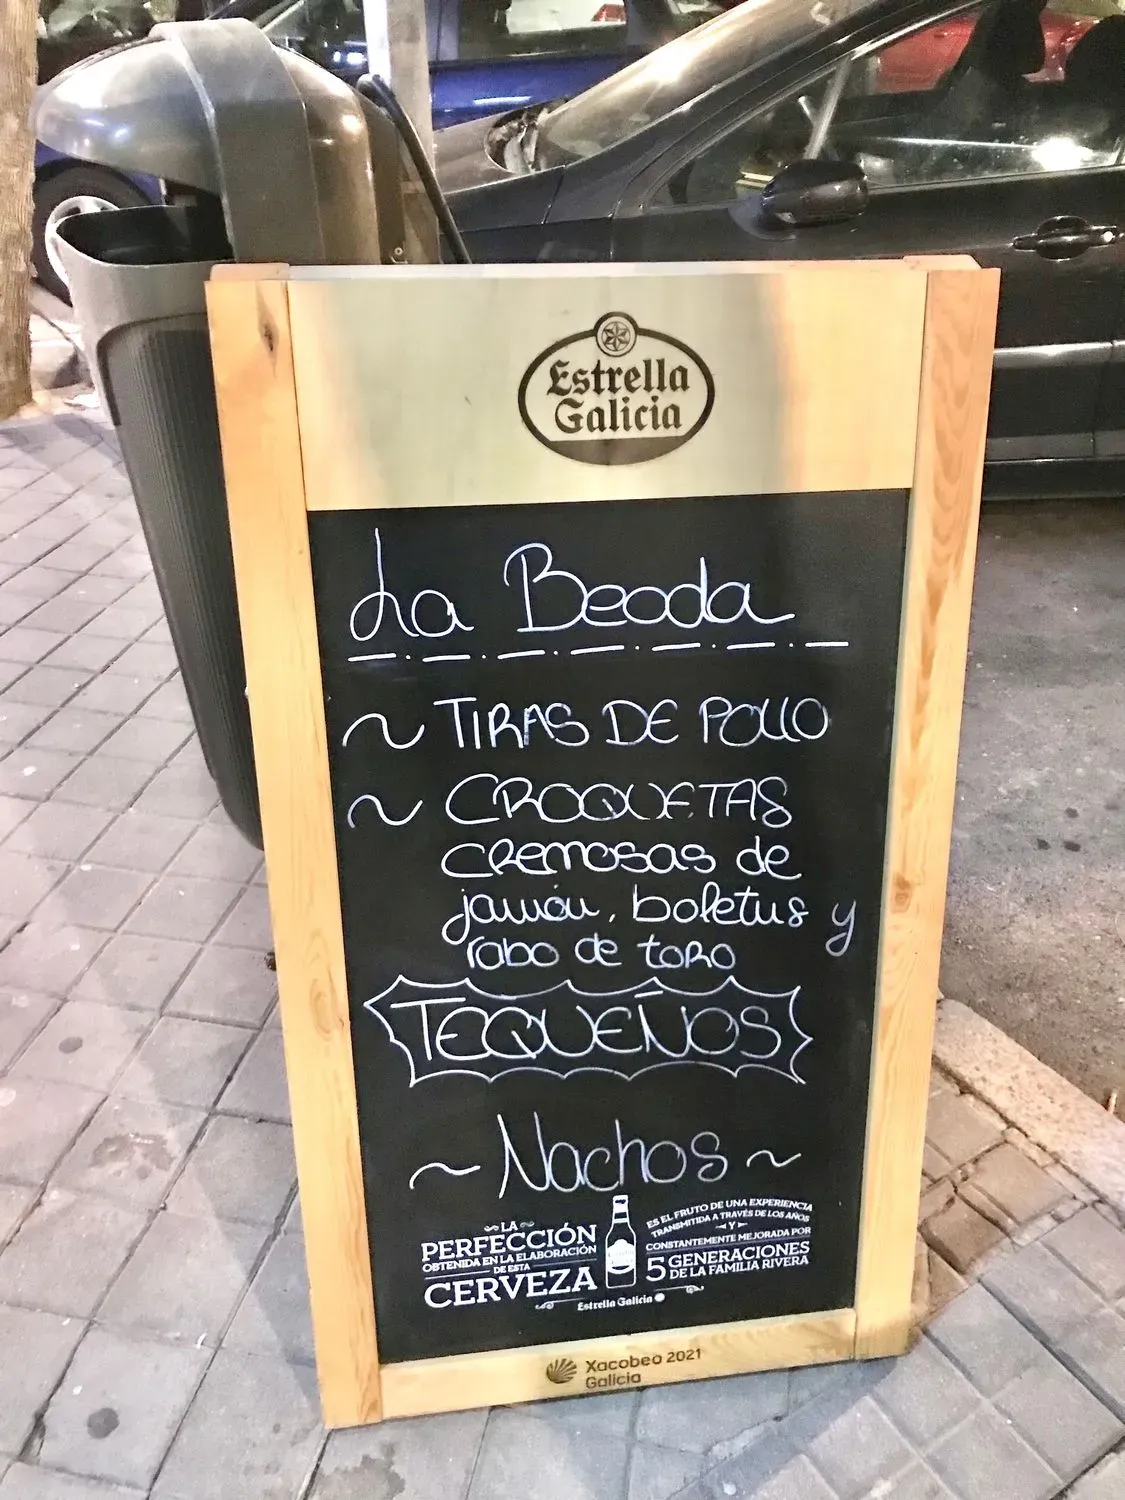 Estrella
Galicia
La Beoda
~ TIRAS DE POLLO
~ CROQUETAS
CREMOSAS de
jamón, boletus y
rabo de toro
TEQUEÑOS
~ Nachos ~
LA
PERFECCIÓN
OBTENIDA EN LA ELABORACIÓN
DE ESTA
CERVEZA
ES EL FRUTO DE UNA EXPERIENCIA
TRANSMITIDA A TRAVÉS DE LOS AÑOS
Y
CONSTANTEMENTE MEJORADA POR
5 GENERACIONES
DE LA FAMILIA RIVERA
Estrella Galicia
Xacobeo 2021
Galicia